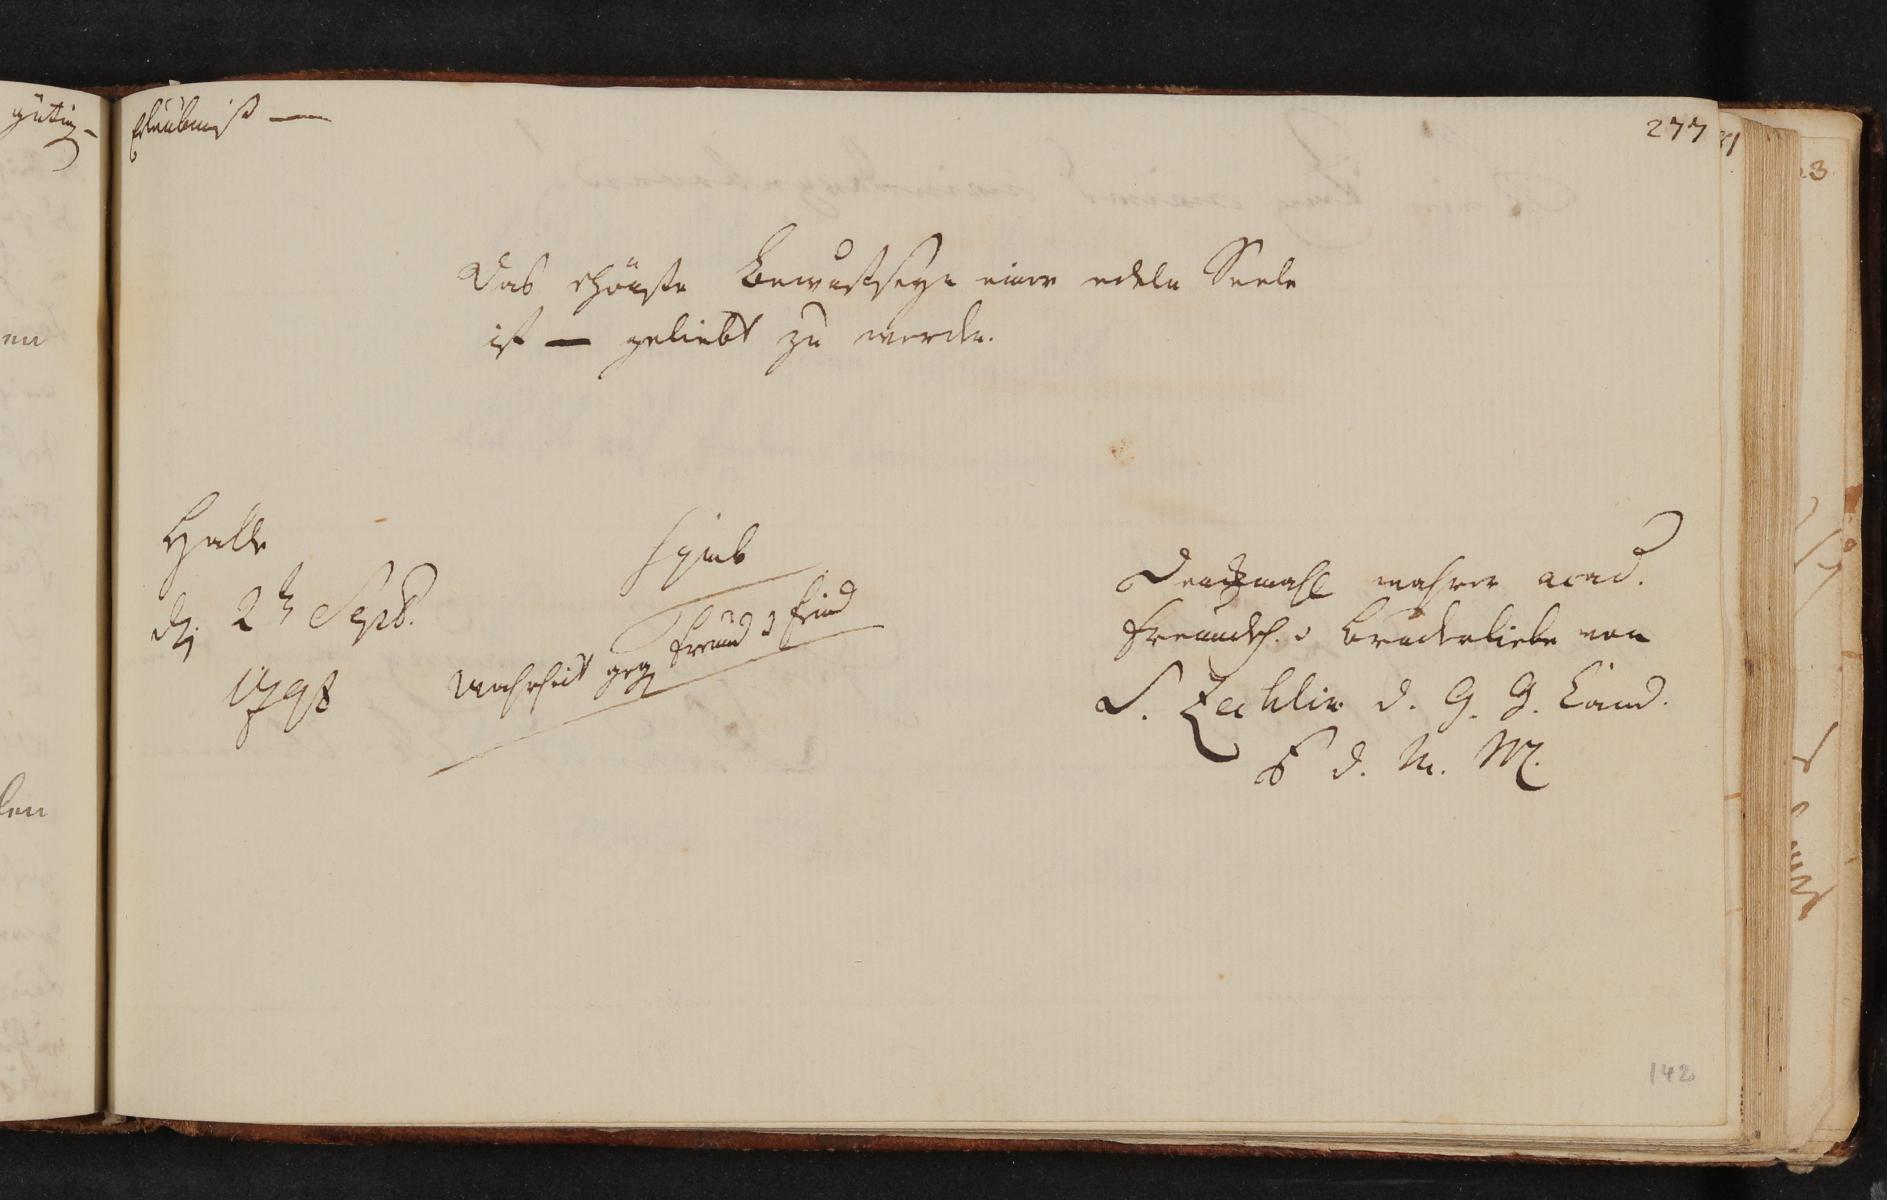 gütig-
Erlaubniß —
277
Das schönste Bewustseyn einer edeln Seele
ist — geliebt zu werden.
Halle
d. 2t Sept.
Symb
Wahrheit geg Freund u Feind
Denkmahl wahrer acad.
Freundsch. u Bruderliebe von
S. Zechlin d. G. G. Cand.
a. d. U. M.
142